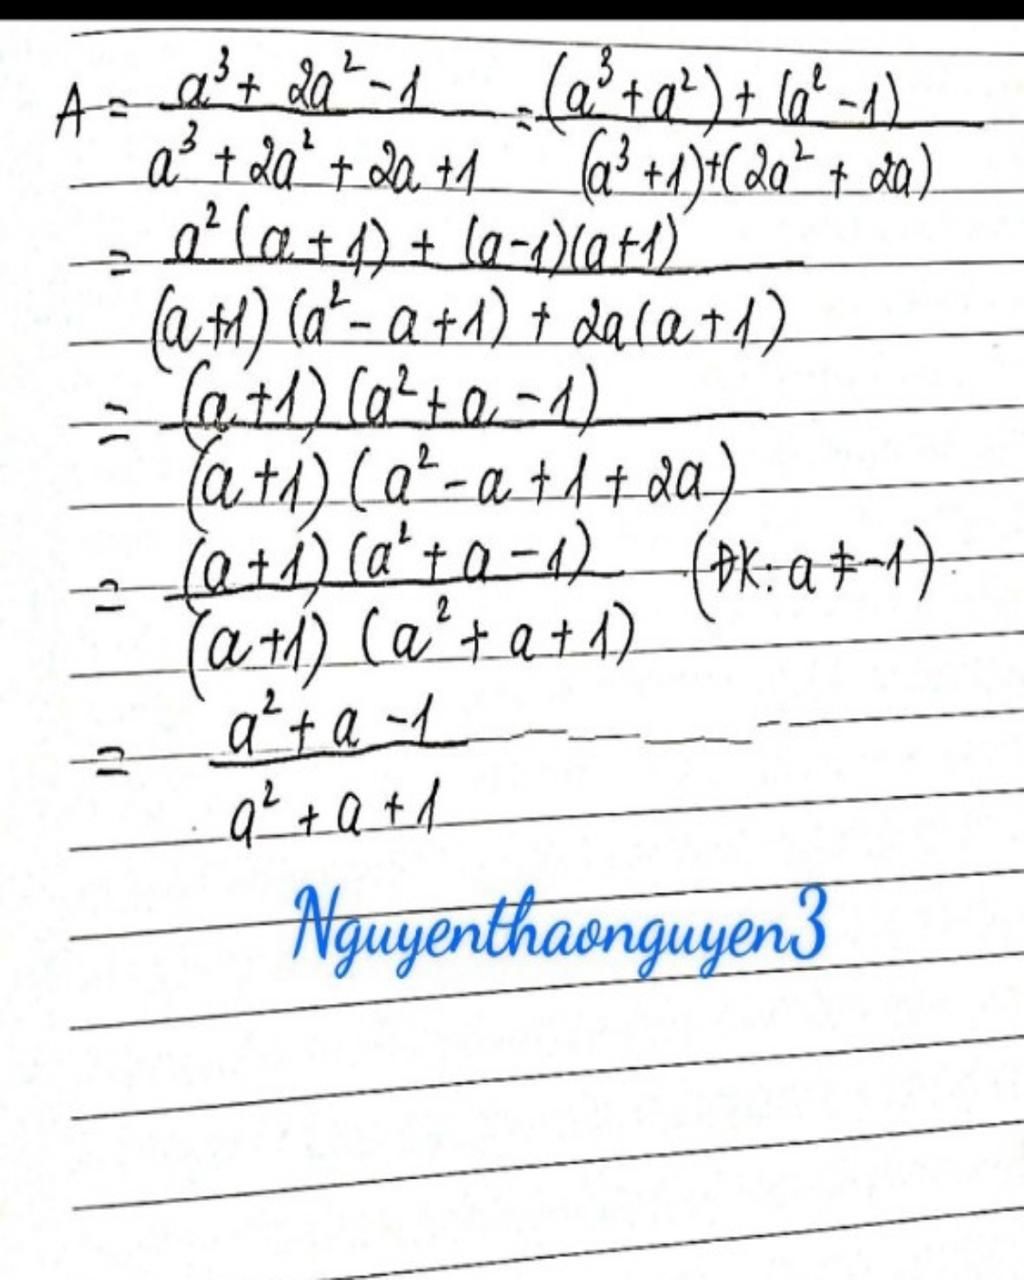 A = (a³ + 2a² - 1)/(a³ + 2a² + 2a + 1) = ((a³ + a²) + (a² - 1))/((a³ + 1) + (2a² + 2a))
= (a²(a + 1) + (a - 1)(a + 1))/((a + 1)(a² - a + 1) + 2a(a + 1))
= ((a + 1)(a² + a - 1))/((a + 1)(a² - a + 1 + 2a))
= ((a + 1)(a² + a - 1))/((a + 1)(a² + a + 1)) (ĐK: a ≠ -1)
= (a² + a - 1)/(a² + a + 1)
Nguyenthaonguyen3